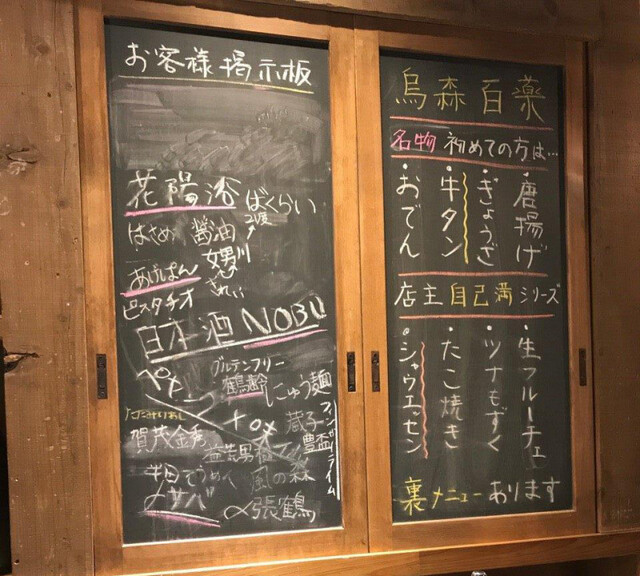 お客様掲示板
花陽浴 ばくらい
はさめ 醤油
女男川
あげぱん
きれい
ピスタチオ
日本酒 NOBU
グルテンフリー
ペヤ
鶴齢 にゅう麺
tox
蔵子
賀茂金秀
豊盃
フィンガーライム
益荒男
風の森
〆サバ
〆張鶴
烏森百薬
名物 初めての方は…
・唐揚げ
・ぎょうざ
・牛タン
・おでん
店主自己満シリーズ
・生フルーチェ
・ツナもずく
・たこ焼き
・シャウエッセン
裏メニューあります